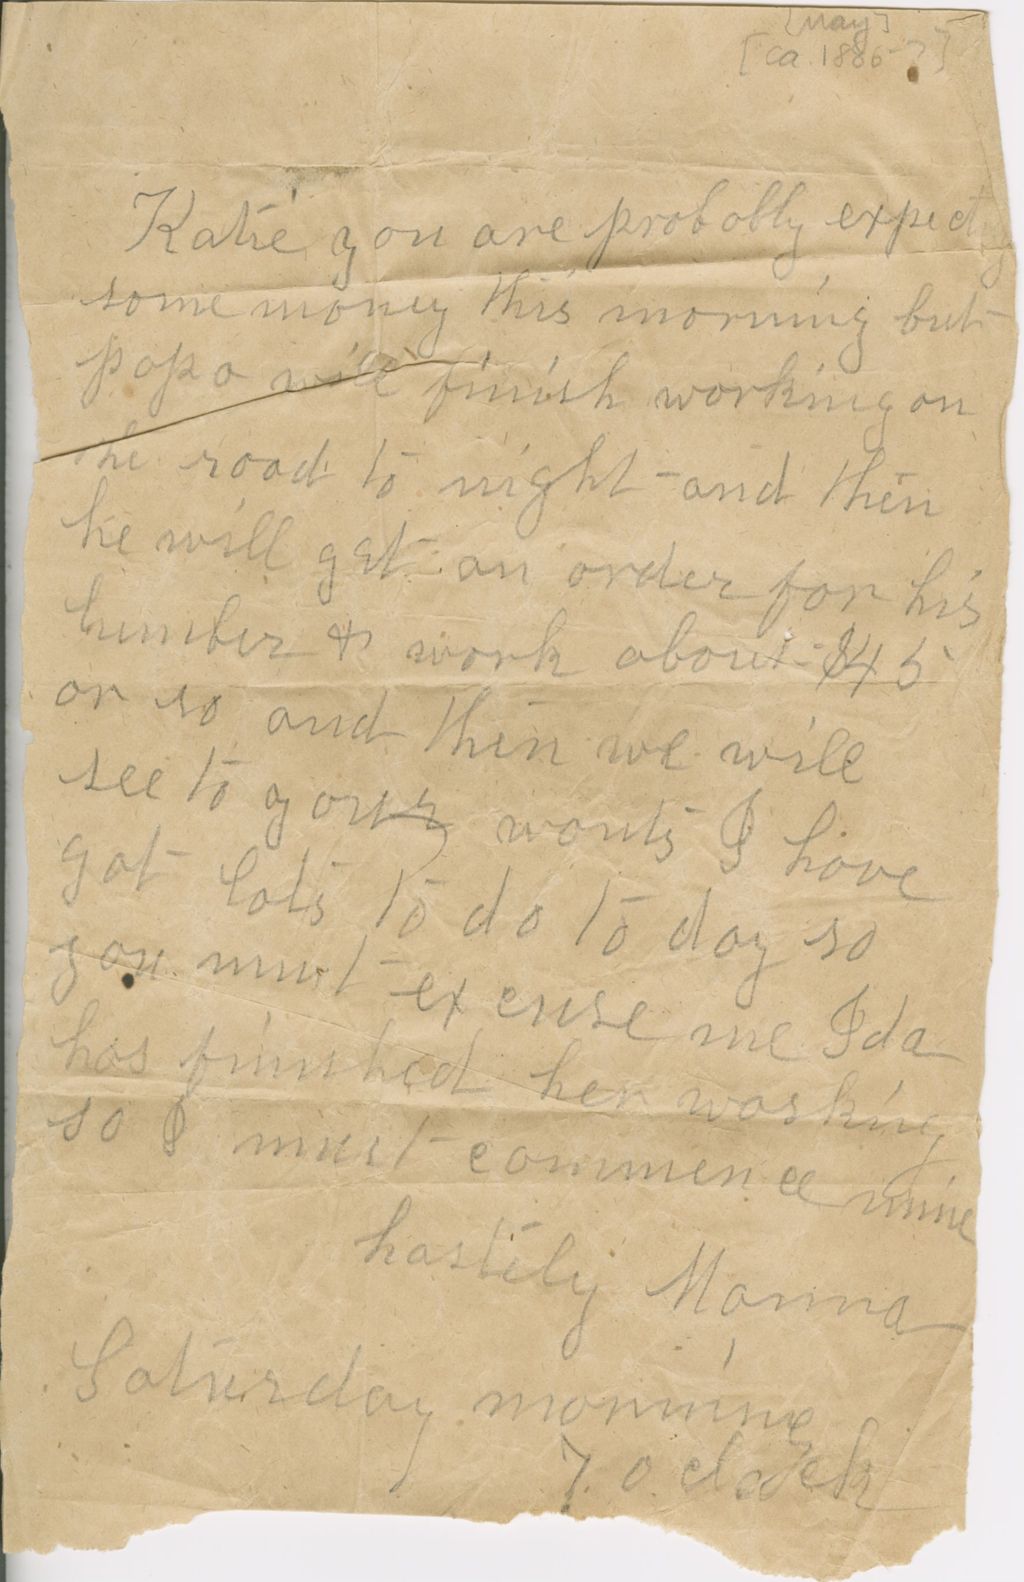 [May]
[ca. 1886?]
Katie you are probobly expecting
some money this morning but
papa will finish working on
the road to night and then
he will get an order for his
lumber & work about $45
or so and then we will
see to your wants I have
got lots to do to day so
you must excuse me Ida
has finished her washing
so I must commence mine
hastily Mamma
Saturday morning
7. o. clock